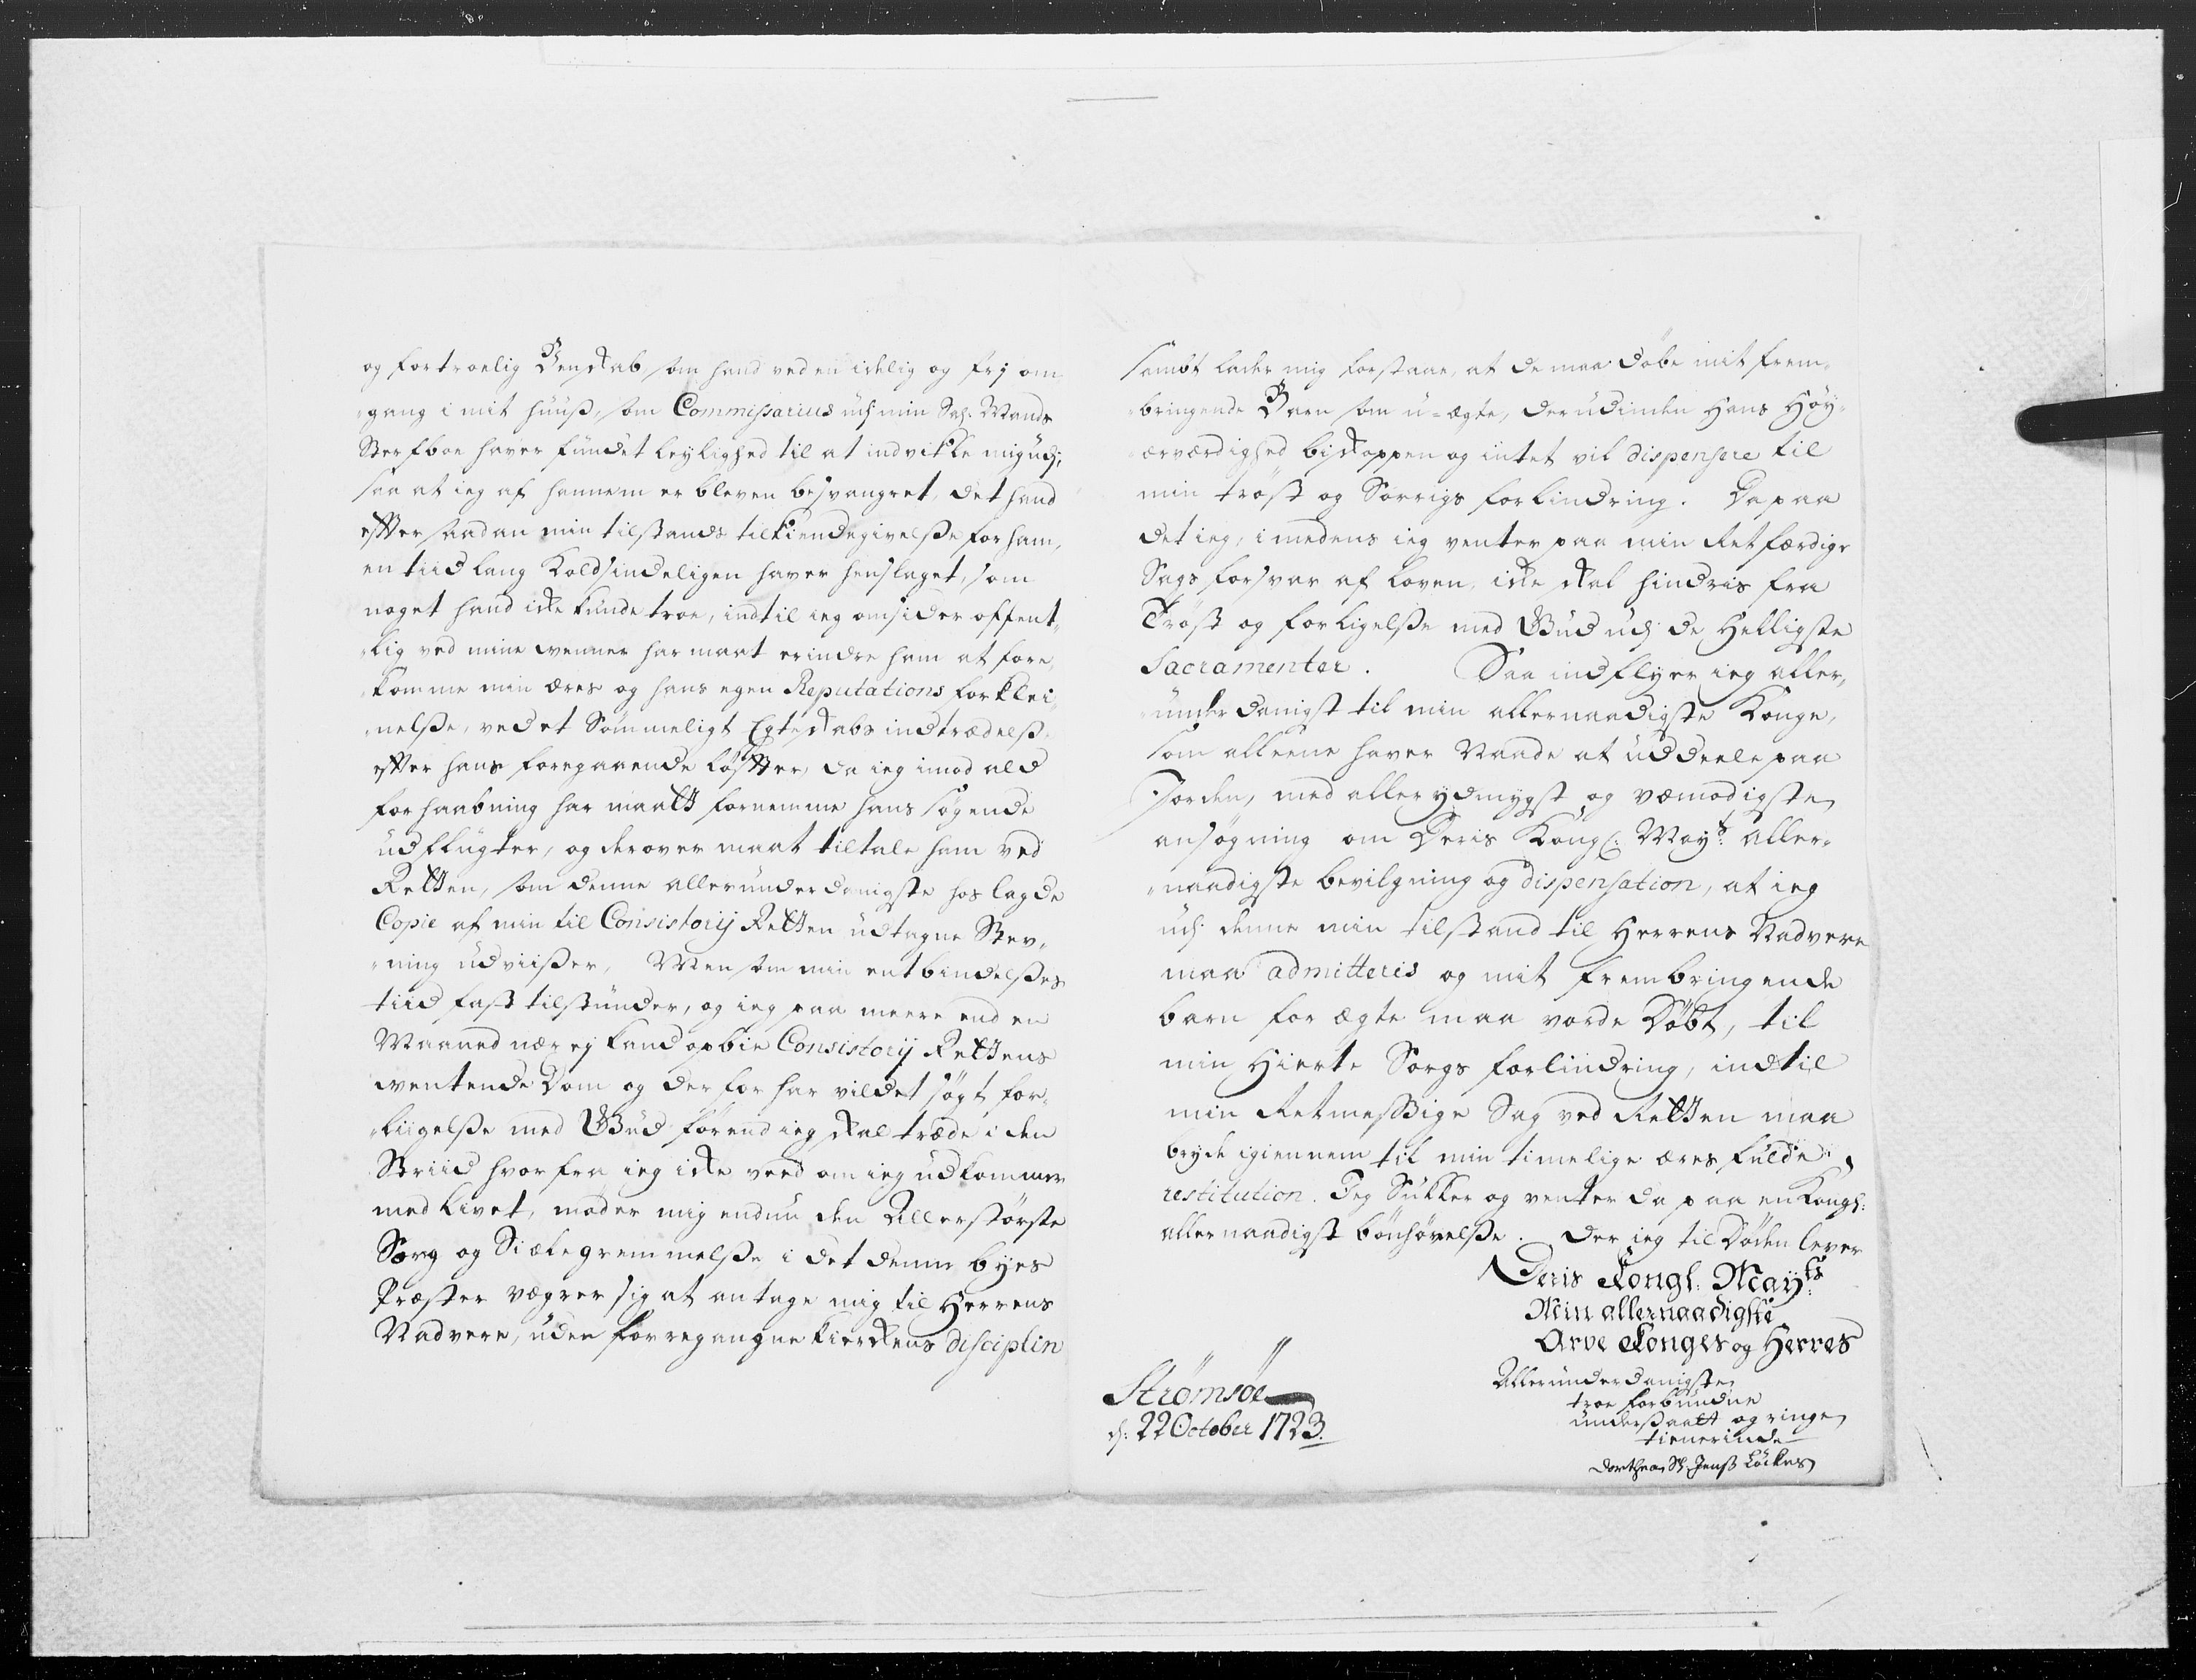 og fortroelig Venskab, som hand ved en idelig og frj om
gang i mit huuß, som Commissarius udj min Sal: Mands
Sterfboe haver fundet leylighed til at indvikle mig udj,
saa at ieg af hannem er bleven besvangret, det hand
efter saadan min tilstands tilkiendegivelße for ham,
en tiid lang koldsindeligen haver henslaget, som
noget hand icke kunde troe, indtil ieg omsider offent-
lig ved mine wenner har maat erindre ham at fore-
komme min æres og hans egen Reputations forklei-
nelße, ved et Sømmeligt Egteskabs indtrædelße
efter hans foregaaende løffter, da ieg imod ald
forhaabning har maatt fornemme hans søgende
udflugter, og derover maat tiltale ham ved
Retten, som denne allerunderdanigste hoslagde
Copie af min til Consistorij Retten udtagne Stev-
ning udviißer, Men som min entbindelßes
tiid fast tilstunder, og ieg paa meere end en
Maaned nær ej kand opbie Consistorij Rettens
wentende Dom og derfor har vildet søgt for-
ligelße med Gud førend ieg skal træde i den
Striid hvorfra ieg icke veed om ieg udkommer
med livet, møder mig endnu den Allerstørste
Sorg og Siæle gremmelße i det denne byes
Præster vægrer sig at antage mig til Herrens
Nadvere, uden forregangne kierckens disciplin
sambt lader mig forstaae, at de maa døbe mit frem-
bringende Barn som u-ægte, derudinden Hans Høy-
ærværdighed biskoppen og intet vil dispensere til
min trøst og Sorrigs forlindring. Da paa
det ieg, imedens ieg venter paa min Retfærdige
Sags forsvar af loven, icke skal hindris fra
Trøst og forligelße med Gud udj de Helligste
Sacramenter. Saa indflyer ieg aller-
underdanigst til min allernaadigste Konge,
som alleene haver Naade at uddeele paa
Jorden, med allerydmygst og vemodigste
ansøgning om Deris Kongl: Mayts: aller-
naadigste bevilgning og dispensation, at ieg
udj denne min tilstand til Herrens Nadvere
maa admitteris og mit frembringende
barn for ægte maa vorde døbt, til
min Hierte Sorgs forlindring, indtil
min Retmessige Sag ved Retten maa
bryde igiennem til min timelige æres fulde
restitution. Jeg Sukker og venter da paa en Kongl:
allernaadigst bønhørelße. Der ieg til Døden lever
Deris Kongl: Mayts:
Min allernaadigste
Arve Konges og Herres
Allerunderdanigste
troe forbundne
undersaatt og ringe
tienerinde
Dorthea Sl. Jenß Lückes
Strømsøe
d: 22 October 1723.